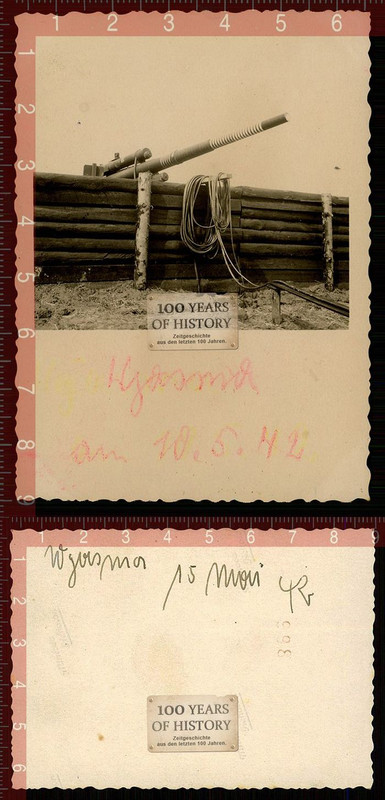 1 2 3 4 5 6
2
3
4
5
6
7
8
9
100 YEARS
OF HISTORY
Zeitgeschichte
aus den letzten 100 Jahren.
Wjasma
am 10.5.42
1 2 3 4 5 6 7 8 9
1
2
3
4
5
6
Wjasma
15 Mai 42
366
100 YEARS
OF HISTORY
Zeitgeschichte
aus den letzten 100 Jahren.